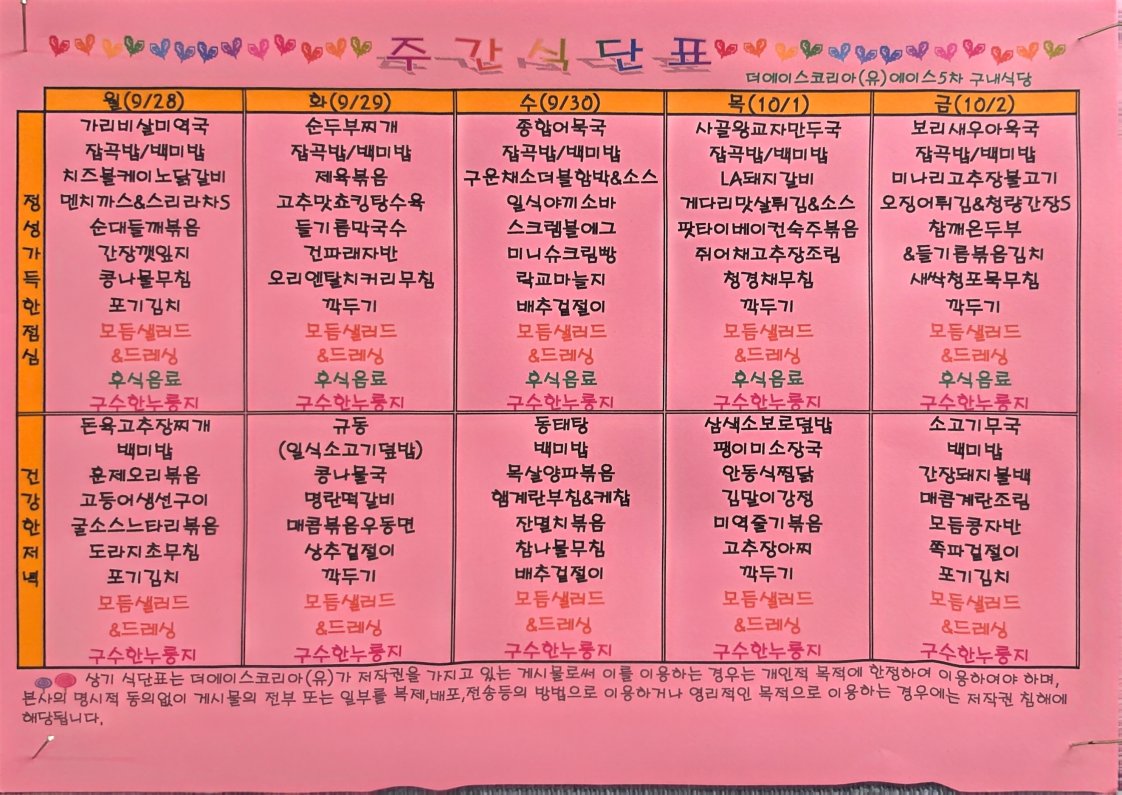 주간식단표
더에이스코리아(유)에이스5차 구내식당
월(9/28) 화(9/29) 수(9/30) 목(10/1) 금(10/2)
정성가득한점심
가리비살미역국 순두부찌개 종합어묵국 사골왕교자만두국 보리새우아욱국
잡곡밥/백미밥 잡곡밥/백미밥 잡곡밥/백미밥 잡곡밥/백미밥 잡곡밥/백미밥
치즈볼케이노닭갈비 제육볶음 구운채소더블함박&소스 LA돼지갈비 미나리고추장불고기
멘치까스&스리라차S 고추맛쵸킹탕수육 일식야끼소바 게다리맛살튀김&소스 오징어튀김&청량간장S
순대들깨볶음 들기름막국수 스크램블에그 팟타이베이컨숙주볶음 참깨온두부
간장깻잎지 건파래자반 미니슈크림빵 쥐어채고추장조림 &들기름볶음김치
콩나물무침 오리엔탈치커리무침 락교마늘지 청경채무침 새싹청포묵무침
포기김치 깍두기 배추겉절이 깍두기 깍두기
모듬샐러드 모듬샐러드 모듬샐러드 모듬샐러드 모듬샐러드
&드레싱 &드레싱 &드레싱 &드레싱 &드레싱
후식음료 후식음료 후식음료 후식음료 후식음료
구수한누룽지 구수한누룽지 구수한누룽지 구수한누룽지 구수한누룽지
건강한저녁
돈육고추장찌개 규동 동태탕 삼색소보로덮밥 소고기무국
백미밥 (일식소고기덮밥) 백미밥 팽이미소장국 백미밥
훈제오리볶음 콩나물국 목살양파볶음 안동식찜닭 간장돼지불백
고등어생선구이 명란떡갈비 햄계란부침&케찹 김말이강정 매콤계란조림
굴소스느타리볶음 매콤볶음우동면 잔멸치볶음 미역줄기볶음 모듬콩자반
도라지초무침 상추겉절이 참나물무침 고추장아찌 쪽파겉절이
포기김치 깍두기 배추겉절이 깍두기 포기김치
모듬샐러드 모듬샐러드 모듬샐러드 모듬샐러드 모듬샐러드
&드레싱 &드레싱 &드레싱 &드레싱 &드레싱
구수한누룽지 구수한누룽지 구수한누룽지 구수한누룽지 구수한누룽지
상기 식단표는 더에이스코리아(유)가 저작권을 가지고 있는 게시물로써 이를 이용하는 경우는 개인적 목적에 한정하여 이용하여야 하며,
본사의 명시적 동의없이 게시물의 전부 또는 일부를 복제,배포,전송등의 방법으로 이용하거나 영리적인 목적으로 이용하는 경우에는 저작권 침해에
해당됩니다.